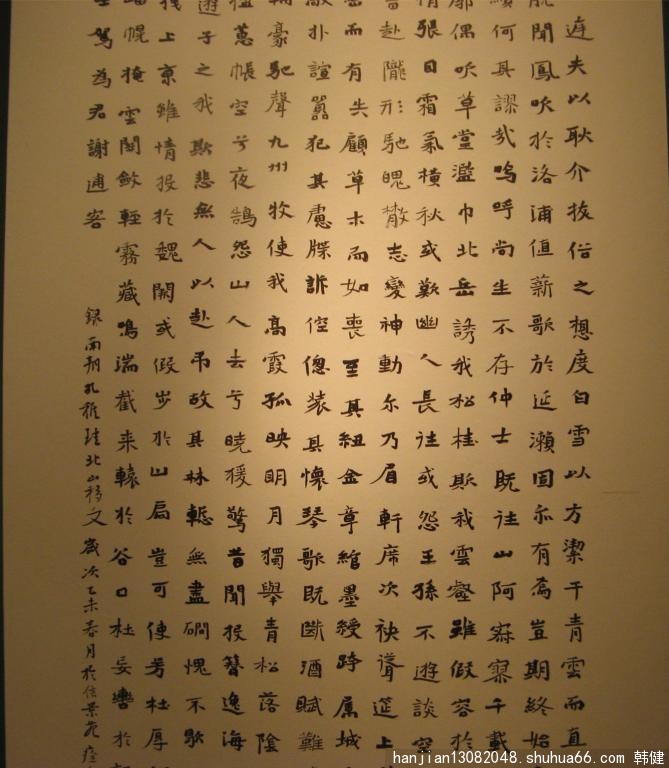 夫以耿介拔俗之想度白雪以方潔干青雲而直
聞鳳吹於洛浦值薪歌於延瀨固亦有焉豈期終始
何其謬哉嗚呼尚生不存仲士既往山阿寂寥千載
偶吹草堂濫巾北岳誘我松桂欺我雲壑雖假容於
情張日霜氣橫秋或歎幽人長往或怨王孫不遊談空
赴隴形馳魄散志變神動尔乃眉軒席次袂聳筵上
岳而有失顧草木而如喪至其紐金章綰墨綬跨属城
敲扑諠囂犯其慮牒訴倥傯裝其懷琴歌既斷酒賦難
豪馳聲九州牧使我高霞孤映明月獨舉青松落陰
楹蕙帳空兮夜鵠怨山人去兮曉猨驚昔聞投簪逸海
遊子之我欺悲無人以赴吊故其林慙無盡磵愧不歇
上京雖情投於魏闕或假步於山扃豈可使芳杜厚
幌掩雲關斂輕霧藏鳴湍截來轅於谷口杜妄轡於
駕為君謝逋客
錄南朝孔稚珪北山移文 歲次乙未春月於信景苑
hanjian13082048.shuhua66.com 韩健